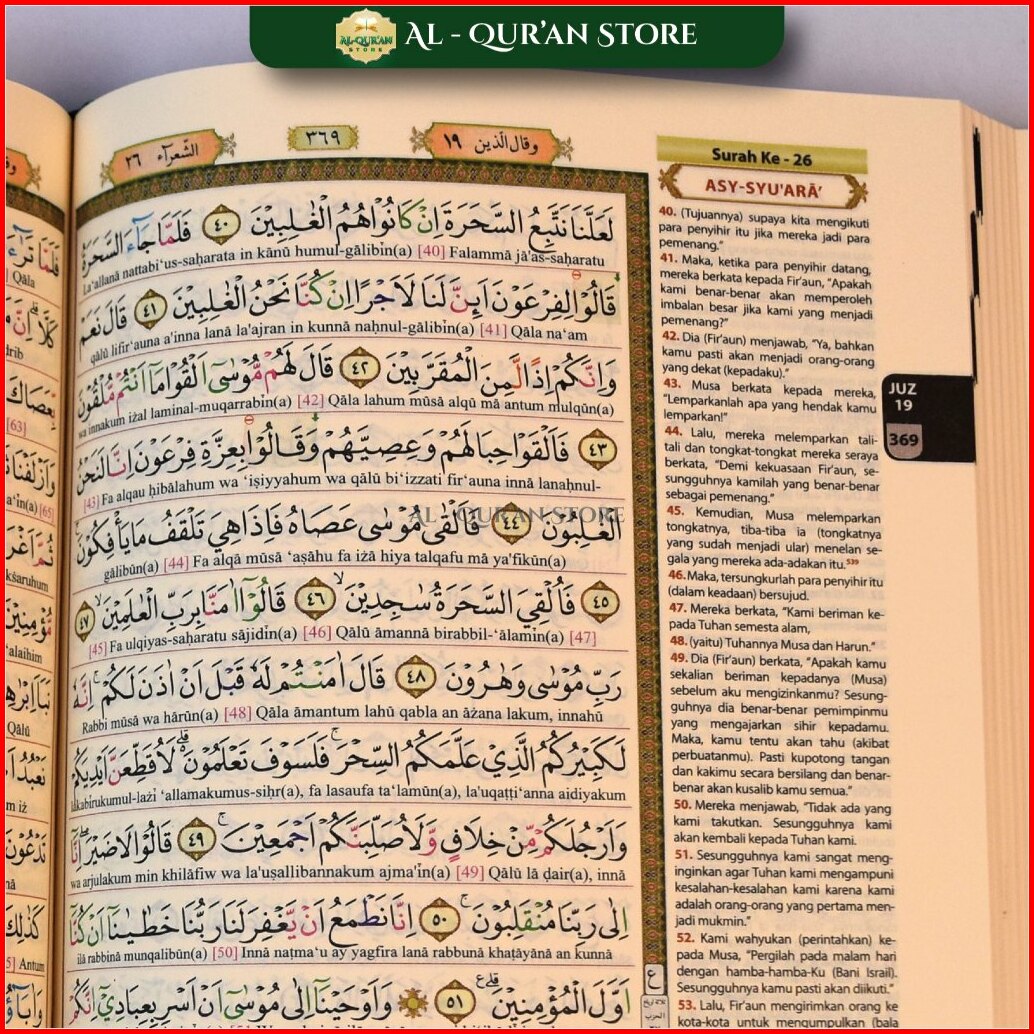 AL-QUR'AN STORE
AL - QUR'AN STORE
الشعراء ٢٦
٣٦٩
وقال الذين ١٩
لَعَلَّنَا نَتَّبِعُ السَّحَرَةَ اِنْ كَانُوْا هُمُ الْغٰلِبِيْنَ ٤٠ فَلَمَّا جَاۤءَ السَّحَرَةُ
La'allanā nattabi'us-saharata in kānū humul-gālibīn(a) [40] Falammā jā'as-saharatu
قَالُوْا لِفِرْعَوْنَ اَىِٕنَّ لَنَا لَاَجْرًا اِنْ كُنَّا نَحْنُ الْغٰلِبِيْنَ ٤١ قَالَ نَعَمْ
qālū lifir'auna a'inna lanā la'ajran in kunnā naḥnul-gālibīn(a) [41] Qāla na'am
وَاِنَّكُمْ اِذًا لَّمِنَ الْمُقَرَّبِيْنَ ٤٢ قَالَ لَهُمْ مُّوْسٰٓى اَلْقُوْا مَآ اَنْتُمْ مُّلْقُوْنَ
wa innakum iżal laminal-muqarrabīn(a) [42] Qāla lahum mūsā alqū mā antum mulqūn(a)
٤٣ فَاَلْقَوْا حِبَالَهُمْ وَعِصِيَّهُمْ وَقَالُوْا بِعِزَّةِ فِرْعَوْنَ اِنَّا لَنَحْنُ
[43] Fa alqau ḥibālahum wa 'iṣiyyahum wa qālū bi'izzati fir'auna innā lanaḥnul-
الْغٰلِبُوْنَ ٤٤ فَاَلْقٰى مُوْسٰى عَصَاهُ فَاِذَا هِيَ تَلْقَفُ مَا يَأْفِكُوْنَ
AL - QUR'AN STORE
gālibūn(a) [44] Fa alqā mūsā 'aṣāhu fa iżā hiya talqafu mā ya'fikūn(a)
٤٥ فَاُلْقِيَ السَّحَرَةُ سٰجِدِيْنَ ٤٦ قَالُوْٓا اٰمَنَّا بِرَبِّ الْعٰلَمِيْنَ ٤٧
[45] Fa ulqiyas-saharatu sājidīn(a) [46] Qālū āmannā birabbil-'ālamīn(a) [47]
رَبِّ مُوْسٰى وَهٰرُوْنَ ٤٨ قَالَ اٰمَنْتُمْ لَهٗ قَبْلَ اَنْ اٰذَنَ لَكُمْ اِنَّهٗ
Rabbi mūsā wa hārūn(a) [48] Qāla āmantum lahū qabla an āżana lakum, innahū
لَكَبِيْرُكُمُ الَّذِيْ عَلَّمَكُمُ السِّحْرَ فَلَسَوْفَ تَعْلَمُوْنَ لَاُقَطِّعَنَّ اَيْدِيَكُمْ
lakabirukumul-lażī 'allamakumus-siḥr(a), fa lasaufa ta'lamūn(a), la'uqaṭṭi'anna aidiyakum
وَاَرْجُلَكُمْ مِّنْ خِلَافٍ وَّلَاُصَلِّبَنَّكُمْ اَجْمَعِيْنَ ٤٩ قَالُوْا لَا ضَيْرَ اِنَّآ
wa arjulakum min khilāfiw wa la'uṣallibannakum ajma'īn(a) [49] Qālū lā ḍair(a), innā
اِلٰى رَبِّنَا مُنْقَلِبُوْنَ ٥٠ اِنَّا نَطْمَعُ اَنْ يَّغْفِرَ لَنَا رَبُّنَا خَطٰيٰنَآ اَنْ كُنَّآ
ilā rabbinā munqalibūn(a) [50] Innā naṭma'u ay yagfira lanā rabbunā khaṭāyānā an kunnā
اَوَّلَ الْمُؤْمِنِيْنَ ٥١ وَاَوْحَيْنَآ اِلٰى مُوْسٰٓى اَنْ اَسْرِ بِعِبَادِيْٓ اِنَّكُمْ
Surah Ke - 26
ASY-SYU'ARĀ'
40. (Tujuannya) supaya kita mengikuti
para penyihir itu jika mereka jadi para
pemenang."
41. Maka, ketika para penyihir datang,
mereka berkata kepada Fir'aun, "Apakah
kami benar-benar akan memperoleh
imbalan besar jika kami yang menjadi
pemenang?"
42. Dia (Fir'aun) menjawab, "Ya, bahkan
kamu pasti akan menjadi orang-orang
yang dekat (kepadaku)."
43. Musa berkata kepada mereka,
"Lemparkanlah apa yang hendak kamu
lemparkan!"
44. Lalu, mereka melemparkan tali-
tali dan tongkat-tongkat mereka seraya
berkata, "Demi kekuasaan Fir'aun, se-
sungguhnya kamilah yang benar-benar
sebagai pemenang."
45. Kemudian, Musa melemparkan
tongkatnya, tiba-tiba ia (tongkatnya
yang sudah menjadi ular) menelan se-
gala yang mereka ada-adakan itu.539
46. Maka, tersungkurlah para penyihir itu
(dalam keadaan) bersujud.
47. Mereka berkata, "Kami beriman ke-
pada Tuhan semesta alam,
48. (yaitu) Tuhannya Musa dan Harun."
49. Dia (Fir'aun) berkata, "Apakah kamu
sekalian beriman kepadanya (Musa)
sebelum aku mengizinkanmu? Sesung-
guhnya dia benar-benar pemimpinmu
yang mengajarkan sihir kepadamu.
Maka, kamu tentu akan tahu (akibat
perbuatanmu). Pasti kupotong tangan
dan kakimu secara bersilang dan benar-
benar akan kusalib kamu semua."
50. Mereka menjawab, "Tidak ada yang
kami takutkan. Sesungguhnya kami
akan kembali kepada Tuhan kami.
51. Sesungguhnya kami sangat meng-
inginkan agar Tuhan kami mengampuni
kesalahan-kesalahan kami karena kami
adalah orang-orang yang pertama men-
jadi mukmin."
52. Kami wahyukan (perintahkan) ke-
pada Musa, "Pergilah pada malam hari
dengan hamba-hamba-Ku (Bani Israil).
Sesungguhnya kamu pasti akan diikuti."
53. Lalu, Fir'aun mengirimkan orang ke
kota-kota untuk mengumpulkan (bala
JUZ
19
369
Qāla
[63]
kṣaruhum
'alaihim
Qālū
Antum